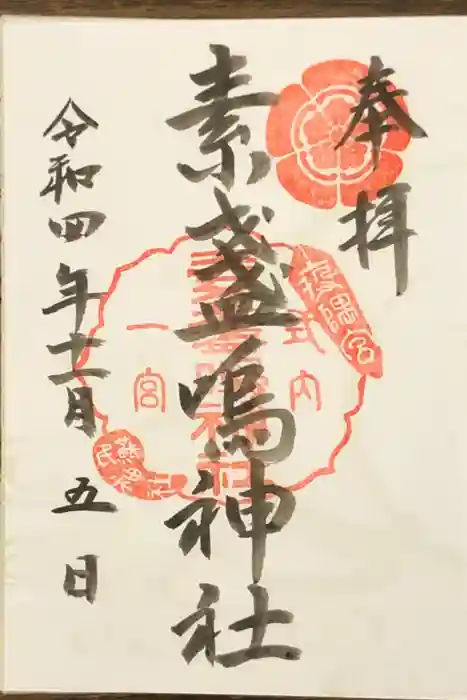 奉拝
素盞嗚神社
式内
一宮
令和四年十一月五日